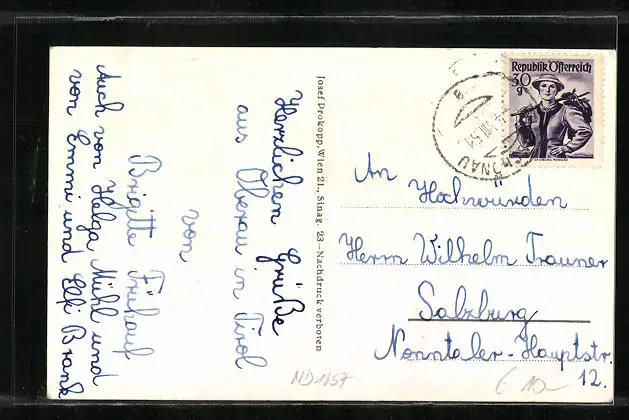 Herzlichen Grüße
aus Oberau in Tirol
von
Brigitte Frühauf
Auch von Helga Mühl und
von Emmi und Elfi Brank
Josef Prokopp, Wien 21., Sinag. 23 - Nachdruck verboten
Republik Österreich
30
g
VIII.51
An
Hochwürden
Herrn Wilhelm Trauner
Salzburg
Nonntaler-Hauptstr.
12.
MD1657
€ 10,-